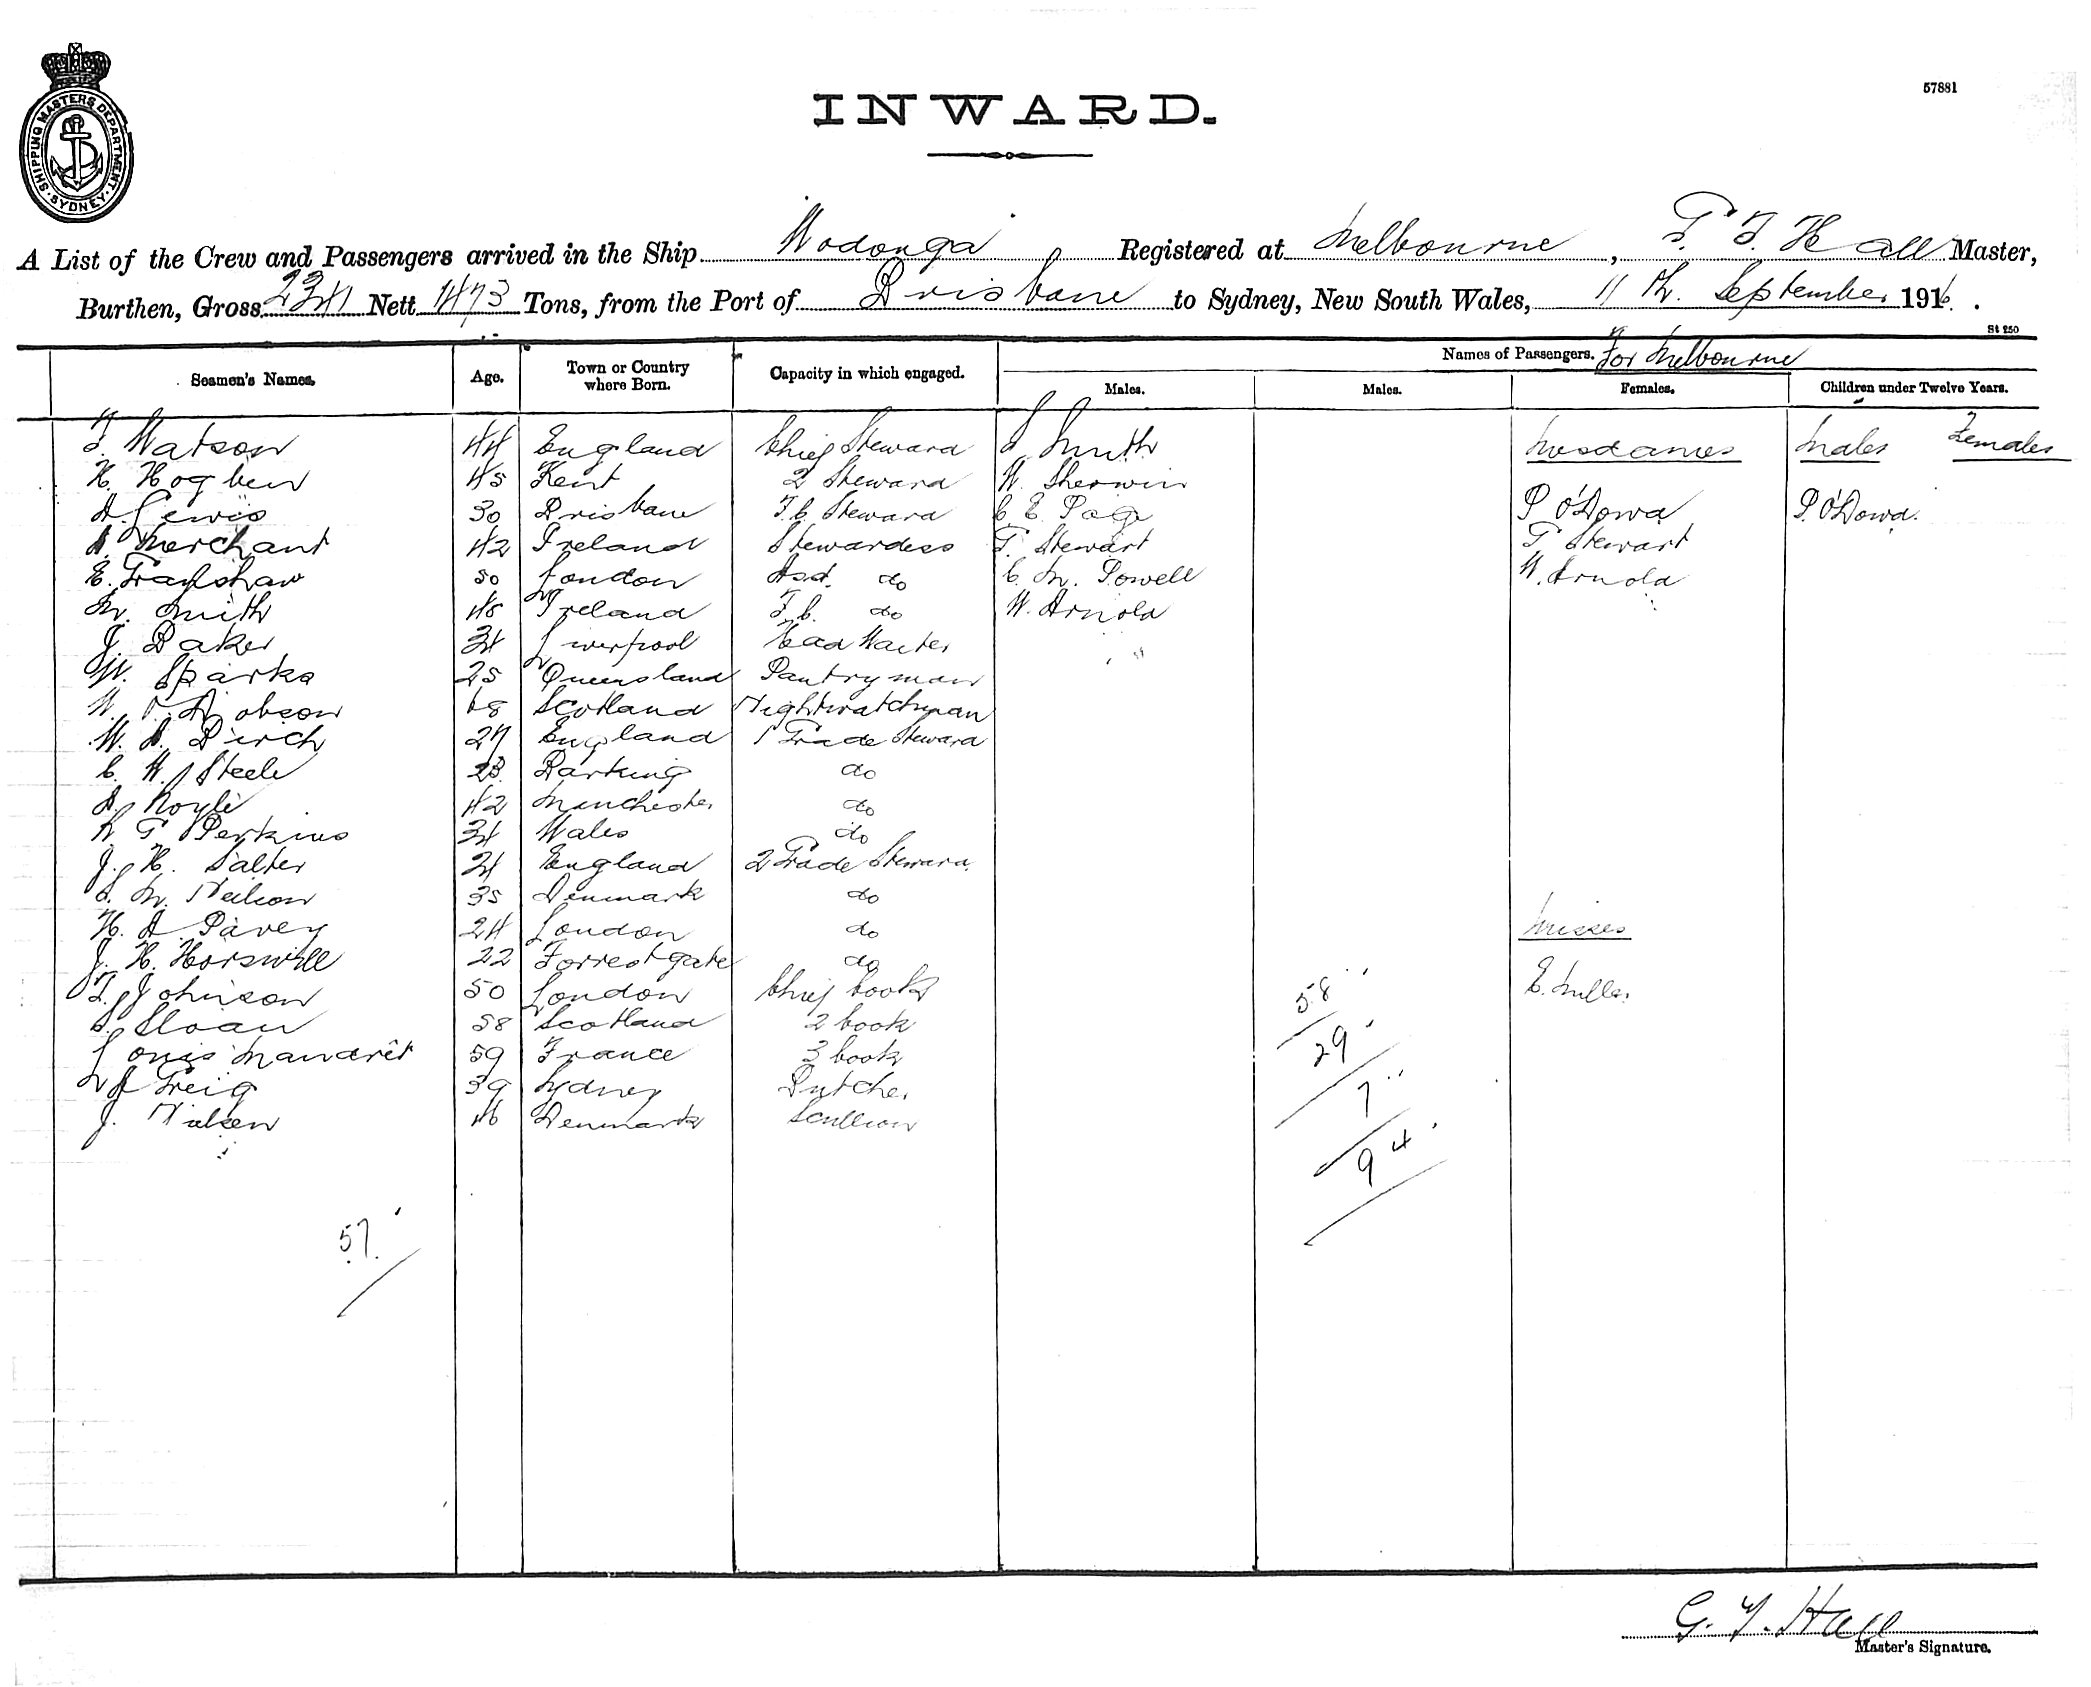 SHIPPING MASTERS DEPARTMENT · SYDNEY ·
57881
INWARD.
A List of the Crew and Passengers arrived in the Ship Wodonga Registered at Melbourne, G. T. Hall Master,
Burthen, Gross 2341 Nett 1473 Tons, from the Port of Brisbane to Sydney, New South Wales, 11th September 1916.
St 250
Seamen's Names. Age. Town or Country where Born. Capacity in which engaged. Names of Passengers. For Melbourne
Males. Males. Females. Children under Twelve Years.
T. Watson 44 England Chief Steward S Smith Mesdames Males Females
H. Hogben 45 Kent 2 Steward W. Sherwin
A. Lewis 30 Brisbane F.C. Steward C E Page P O'Dowd P. O'Dowd.
A Merchant 42 Ireland Stewardess G. Stewart G Stewart
E. Franshaw 50 London Asst. do C. M. Powell W. Arnold
M. Smith 48 Ireland F.C. do W. Arnold
J. Baker 34 Liverpool Head Waiter
W. Sparks 25 Queensland Pantryman
W. Robson 68 Scotland Nightwatchman
W. A. Birch 27 England 1 Grade Steward
C. W. Steele 23 Barking do
A. Royle 42 Manchester do
W G Perkins 34 Wales do
J. H. Salter 21 England 2 Grade Steward
S. M. Neilson 35 Denmark do
H. A Pavey 24 London do Misses
J. H. Horswill 22 Forrestgate do
T. Johnson 50 London Chief Cook 58 E. Miller
S. Sloan 58 Scotland 2 Cook 29
Louis Mandrêt 59 France 3 Cook
A Greig 39 Sydney Butcher 7
J. Nielsen 46 Denmark Scullion
94
57
G. T. Hall
Master's Signature.